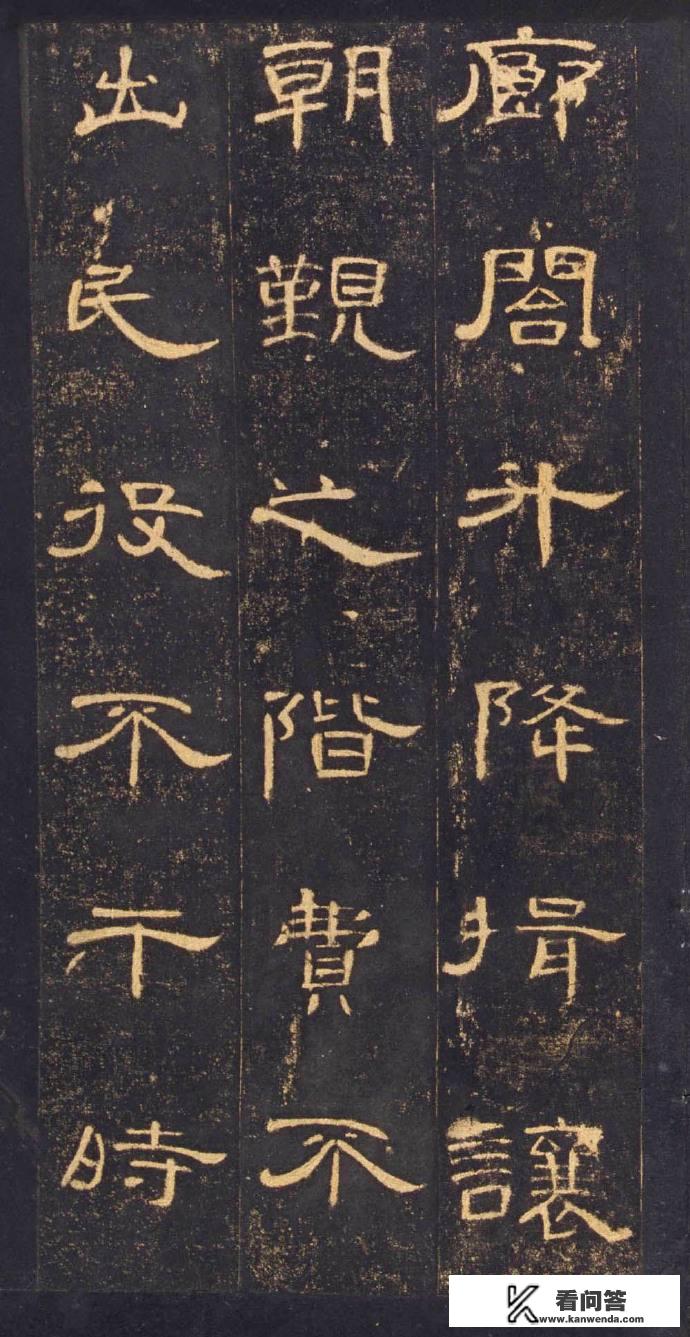 廊閤升降揖讓
朝覲之階費不
出民役不干時
K 看问答
www.kanwenda.com